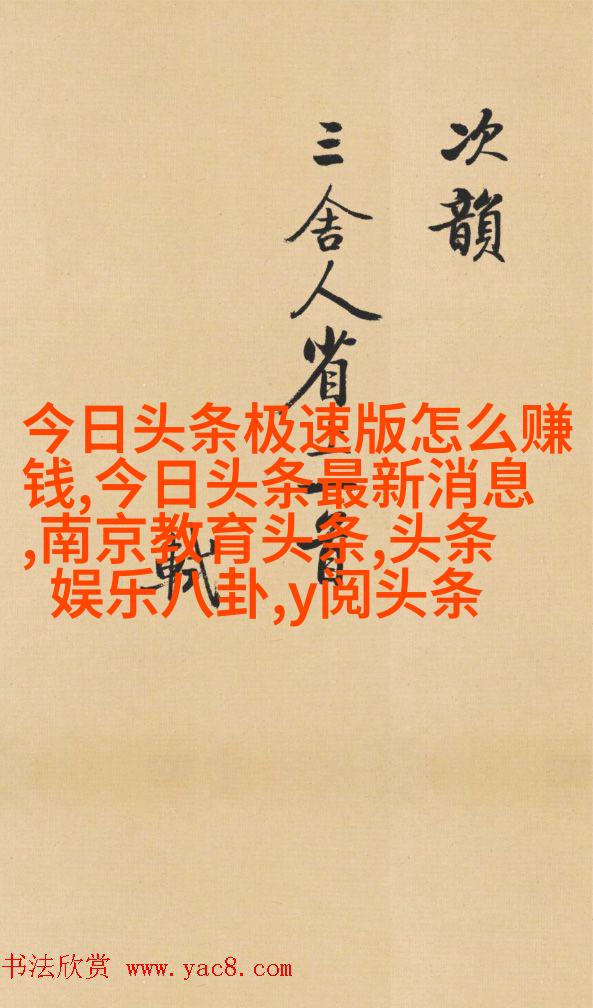 次韻
三舍人省首
軾
今日头条极速版怎么赚
钱,今日头条最新消息
,南京教育头条,头条
娱乐八卦,y阅头条
书法欣赏 www.yac8.com